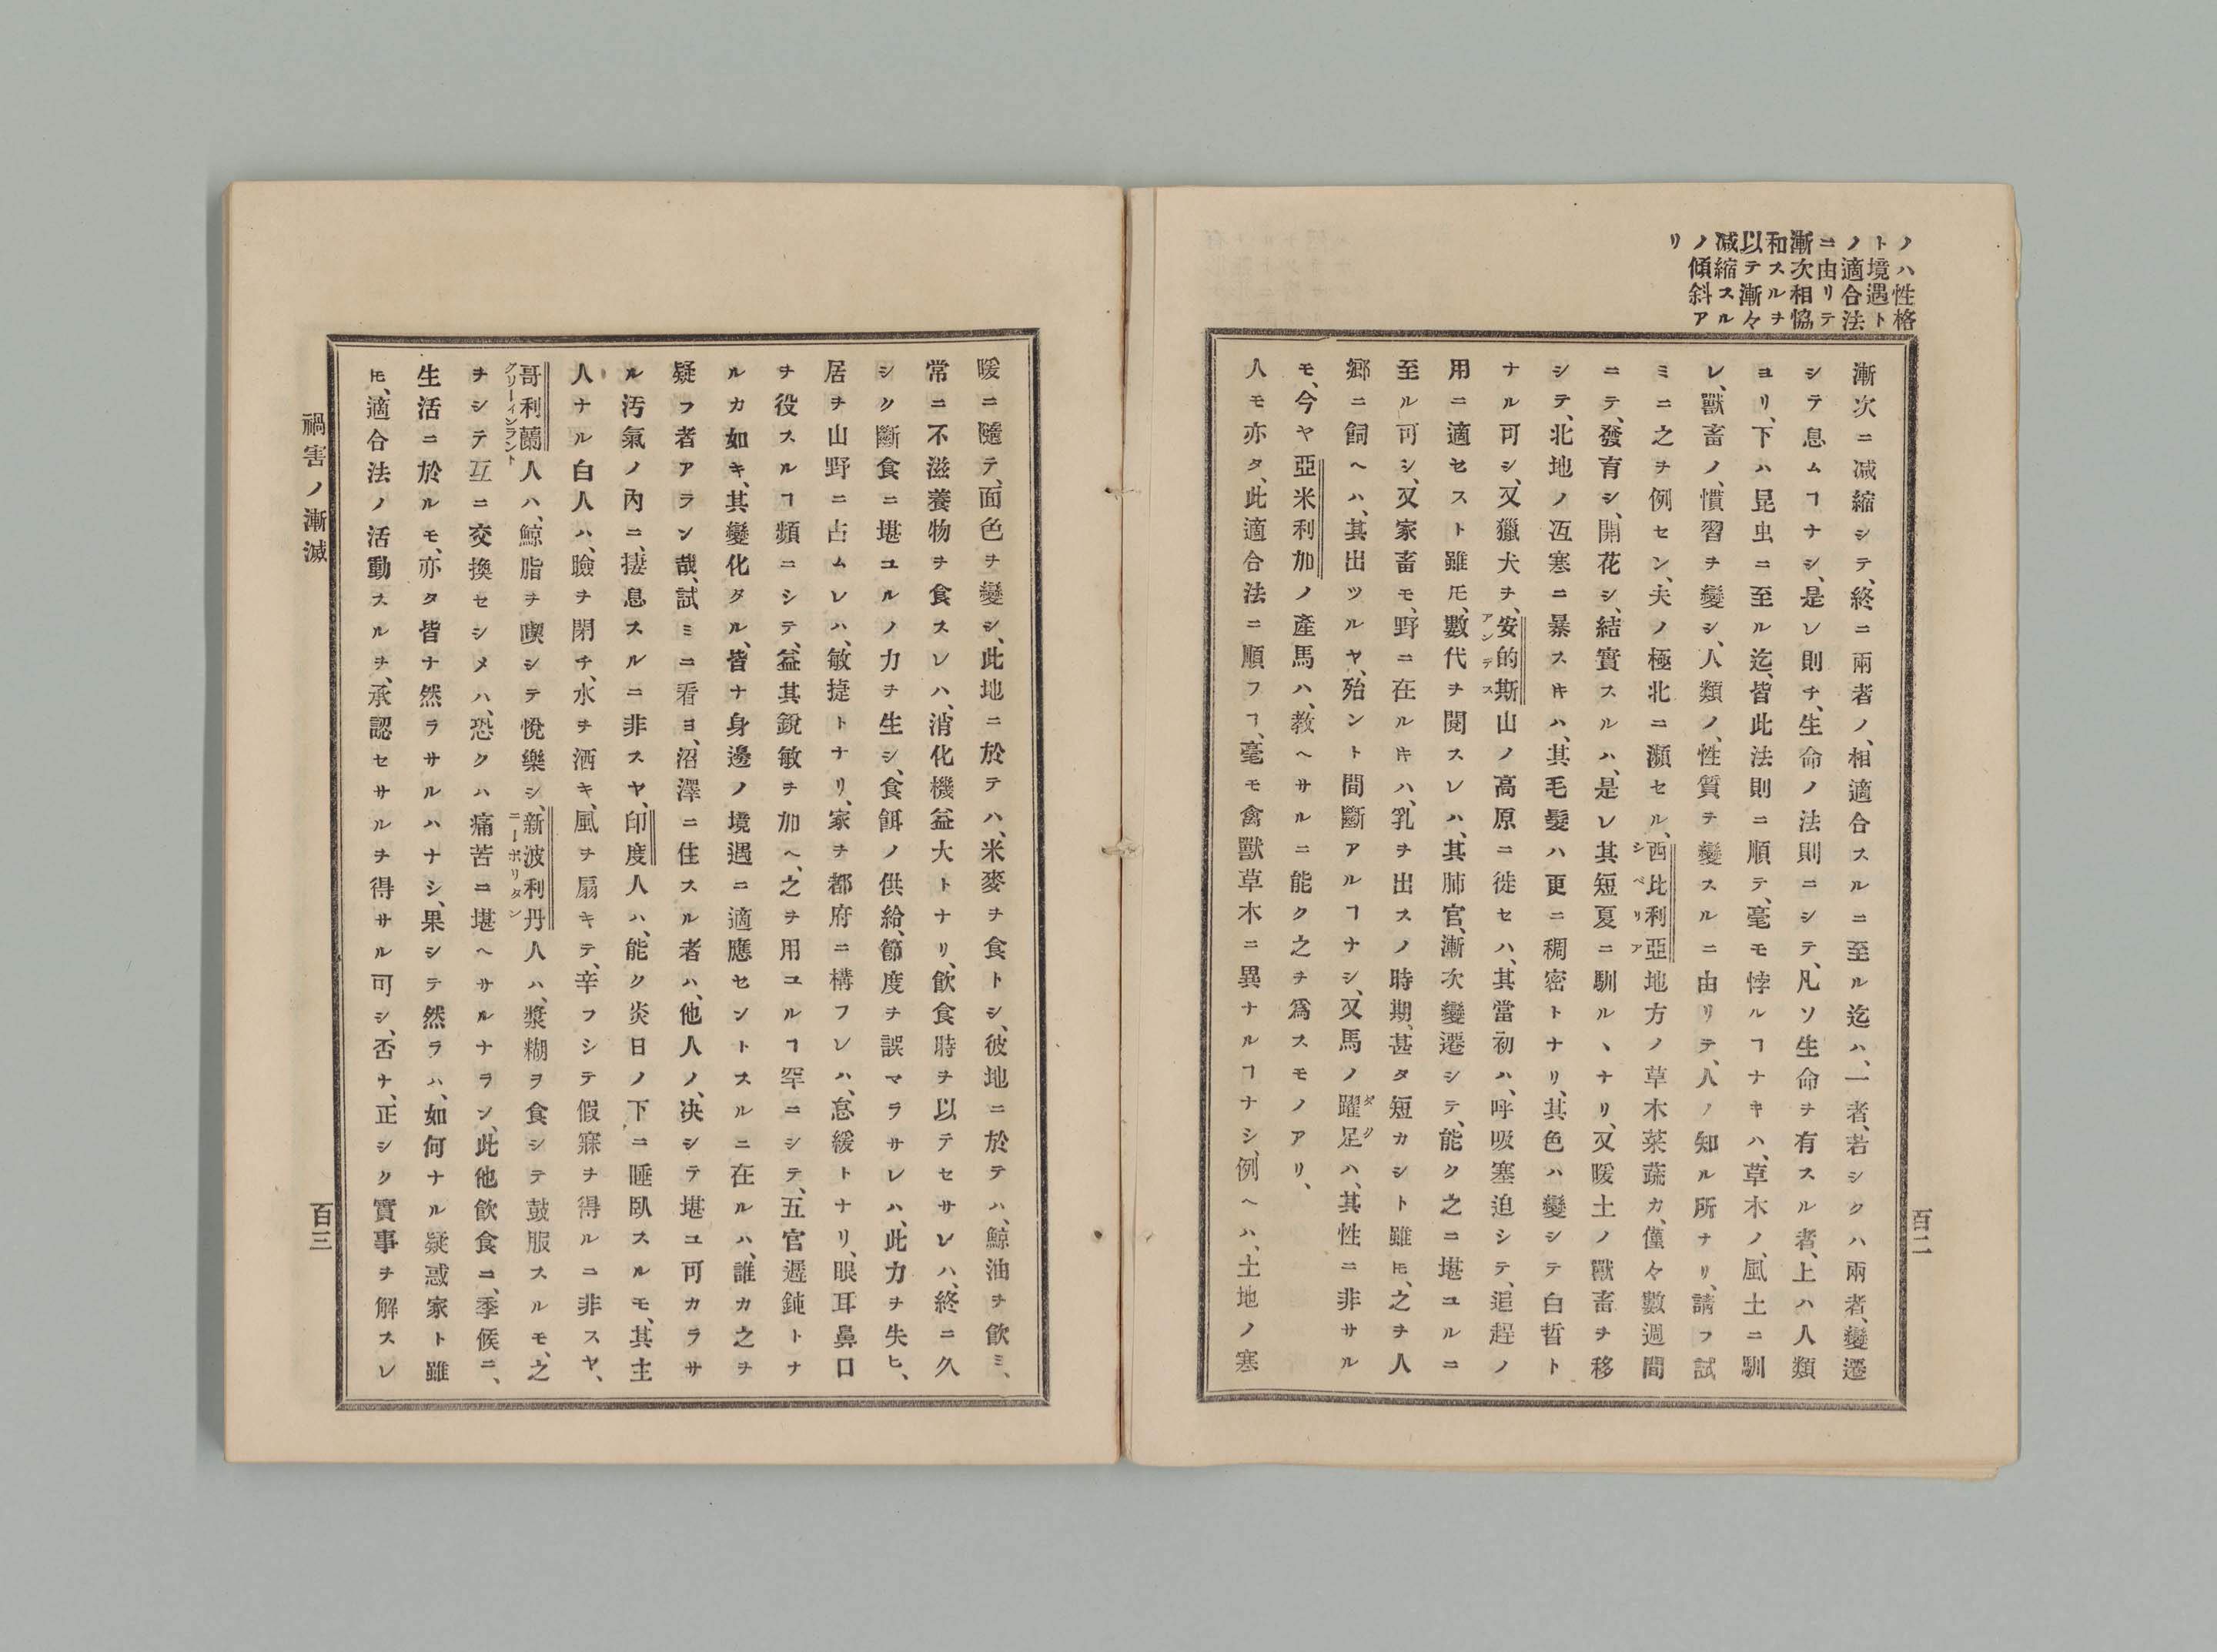 ノハ性格
ト境遇ト
ノ適合法
ニ由リテ
漸次相恊
和スルヲ
以テ漸々
减縮スル
ノ傾斜ア
リ
漸次ニ减縮シテ、終ニ兩者ノ、相適合スルニ至ル迄ハ、一者、若シクハ兩者、變遷
シテ息ムヿナシ、是レ則チ、生命ノ法則ニシテ、凡ソ生命ヲ有スル者、上ハ人類
ヨリ、下ハ昆虫ニ至ル迄、皆此法則ニ順テ、毫モ悖ルヿナキハ、草木ノ、風土ニ馴
レ、獸畜ノ、慣習ヲ變シ、人類ノ、性質ヲ變スルニ由リテ、人ノ知ル所ナリ、請フ試
ミニ之ヲ例セン、夫ノ極北ニ瀕セル、西比利亞地方ノ草木菜蔬カ、僅々數週間
シベリア
ニテ、發育シ、開花シ、結實スルハ、是レ其短夏ニ馴ルヽナリ、又暖土ノ獸畜ヲ移
シテ、北地ノ冱寒ニ暴スキハ、其毛髮ハ更ニ稠密トナリ、其色ハ變シテ白晢ト
ナル可シ、又獵犬ヲ、安的斯山ノ高原ニ徙セハ、其當初ハ、呼吸塞迫シテ、追趕ノ
アンデス
用ニ適セスト雖𪜈、數代ヲ閱スレハ、其肺官、漸次變遷シテ、能ク之ニ堪ユルニ
至ル可シ、又家畜モ、野ニ在ルキハ、乳ヲ出スノ時期、甚タ短カシト雖𪜈、之ヲ人
郷ニ飼ヘハ、其出ツルヤ、殆ント間斷アルヿナシ、又馬ノ躍足ハ、其性ニ非サル
ダク
モ、今ヤ亞米利加ノ產馬ハ、教ヘサルニ能ク之ヲ爲スモノアリ、
人モ亦タ、此適合法ニ順フヿ、毫モ禽獸草木ニ異ナルヿナシ、例ヘハ、土地ノ寒
百二
暖ニ隨テ、面色ヲ變シ、此地ニ於テハ、米麥ヲ食トシ、彼地ニ於テハ、鯨油ヲ飮ミ、
常ニ不滋養物ヲ食スレハ、消化機益大トナリ、飮食時ヲ以テセサレハ、終ニ久
シク斷食ニ堪ユルノ力ヲ生シ、食餌ノ供給、節度ヲ誤マラサレハ、此力ヲ失ヒ、
居ヲ山野ニ占ムレハ、敏捷トナリ、家ヲ都府ニ構フレハ、怠緩トナリ、眼耳鼻口
ヲ役スルヿ頻ニシテ、益其銳敏ヲ加ヘ、之ヲ用ユルヿ罕ニシテ、五官遲鈍トナ
ルカ如キ、其變化タル、皆ナ身邊ノ境遇ニ適應セントスルニ在ルハ、誰カ之ヲ
疑フ者アラン哉、試ミニ看ヨ、沼澤ニ住スル者ハ、他人ノ、决シテ堪ユ可カラサ
ル汚氣ノ內ニ、捿息スルニ非スヤ、印度人ハ、能ク炎日ノ下ニ睡臥スルモ、其主
人ナル白人ハ、瞼ヲ閉チ、水ヲ洒キ、風ヲ扇キテ、辛フシテ假寐ヲ得ルニ非スヤ、
哥利蘭人ハ、鯨脂ヲ喫シテ悅樂シ、新波利丹人ハ、漿糊ヲ食シテ鼓服スルモ、之
グリーインラント
ニーポリタン
ヲシテ互ニ交換セシメハ、恐クハ痛苦ニ堪ヘサルナラン、此他飮食ニ、季候ニ、
生活ニ於ルモ、亦タ皆ナ然ラサルハナシ、果シテ然ラハ、如何ナル疑惑家ト雖
𪜈、適合法ノ活動スルヲ、承認セサルヲ得サル可シ、否ナ、正シク實事ヲ解スレ
禍害ノ漸滅
百三